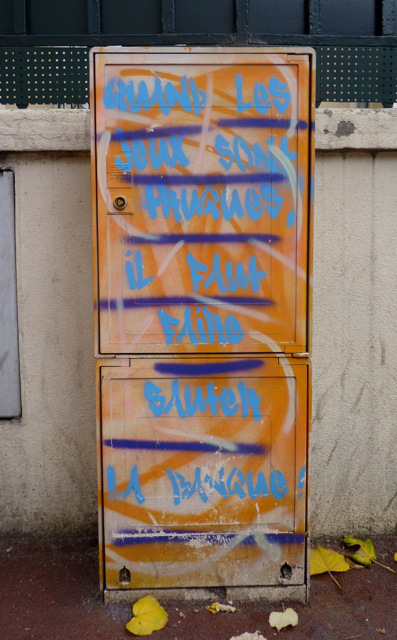 QUAND LES
JEUX SONT
TRUQUÉS,
iL FAUT
FAIRE
SAUTER
LA BANQUE!